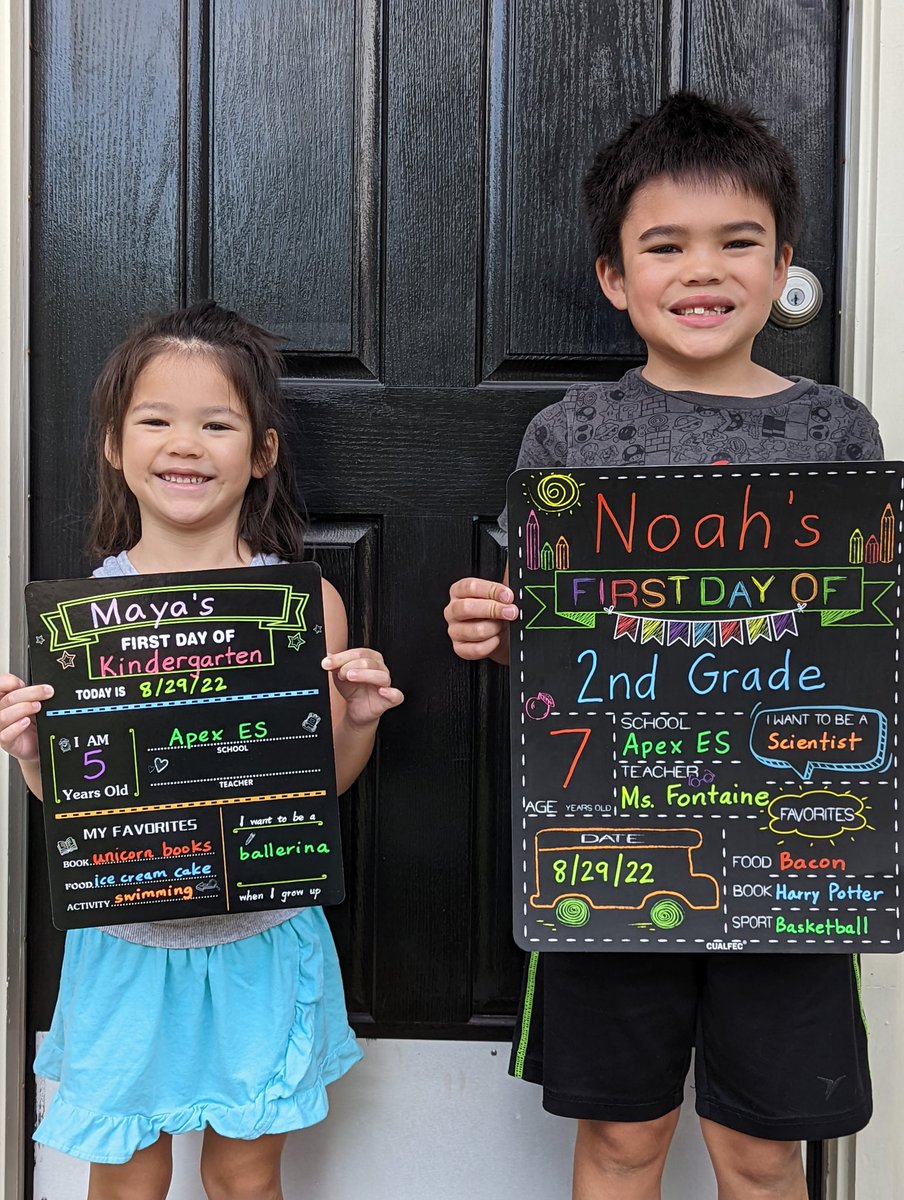 Maya's
FIRST DAY OF
Kindergarten
TODAY IS 8/29/22
I AM
5
Years Old
Apex ES
SCHOOL
TEACHER
MY FAVORITES
BOOK unicorn books
FOOD ice cream cake
ACTIVITY swimming
I want to be a
ballerina
when I grow up
Noah's
FIRST DAY OF
2nd Grade
7
AGE YEARS OLD
SCHOOL
Apex ES
TEACHER
Ms. Fontaine
I WANT TO BE A
Scientist
DATE
8/29/22
FAVORITES
FOOD Bacon
BOOK Harry Potter
SPORT Basketball
CUALFEC®